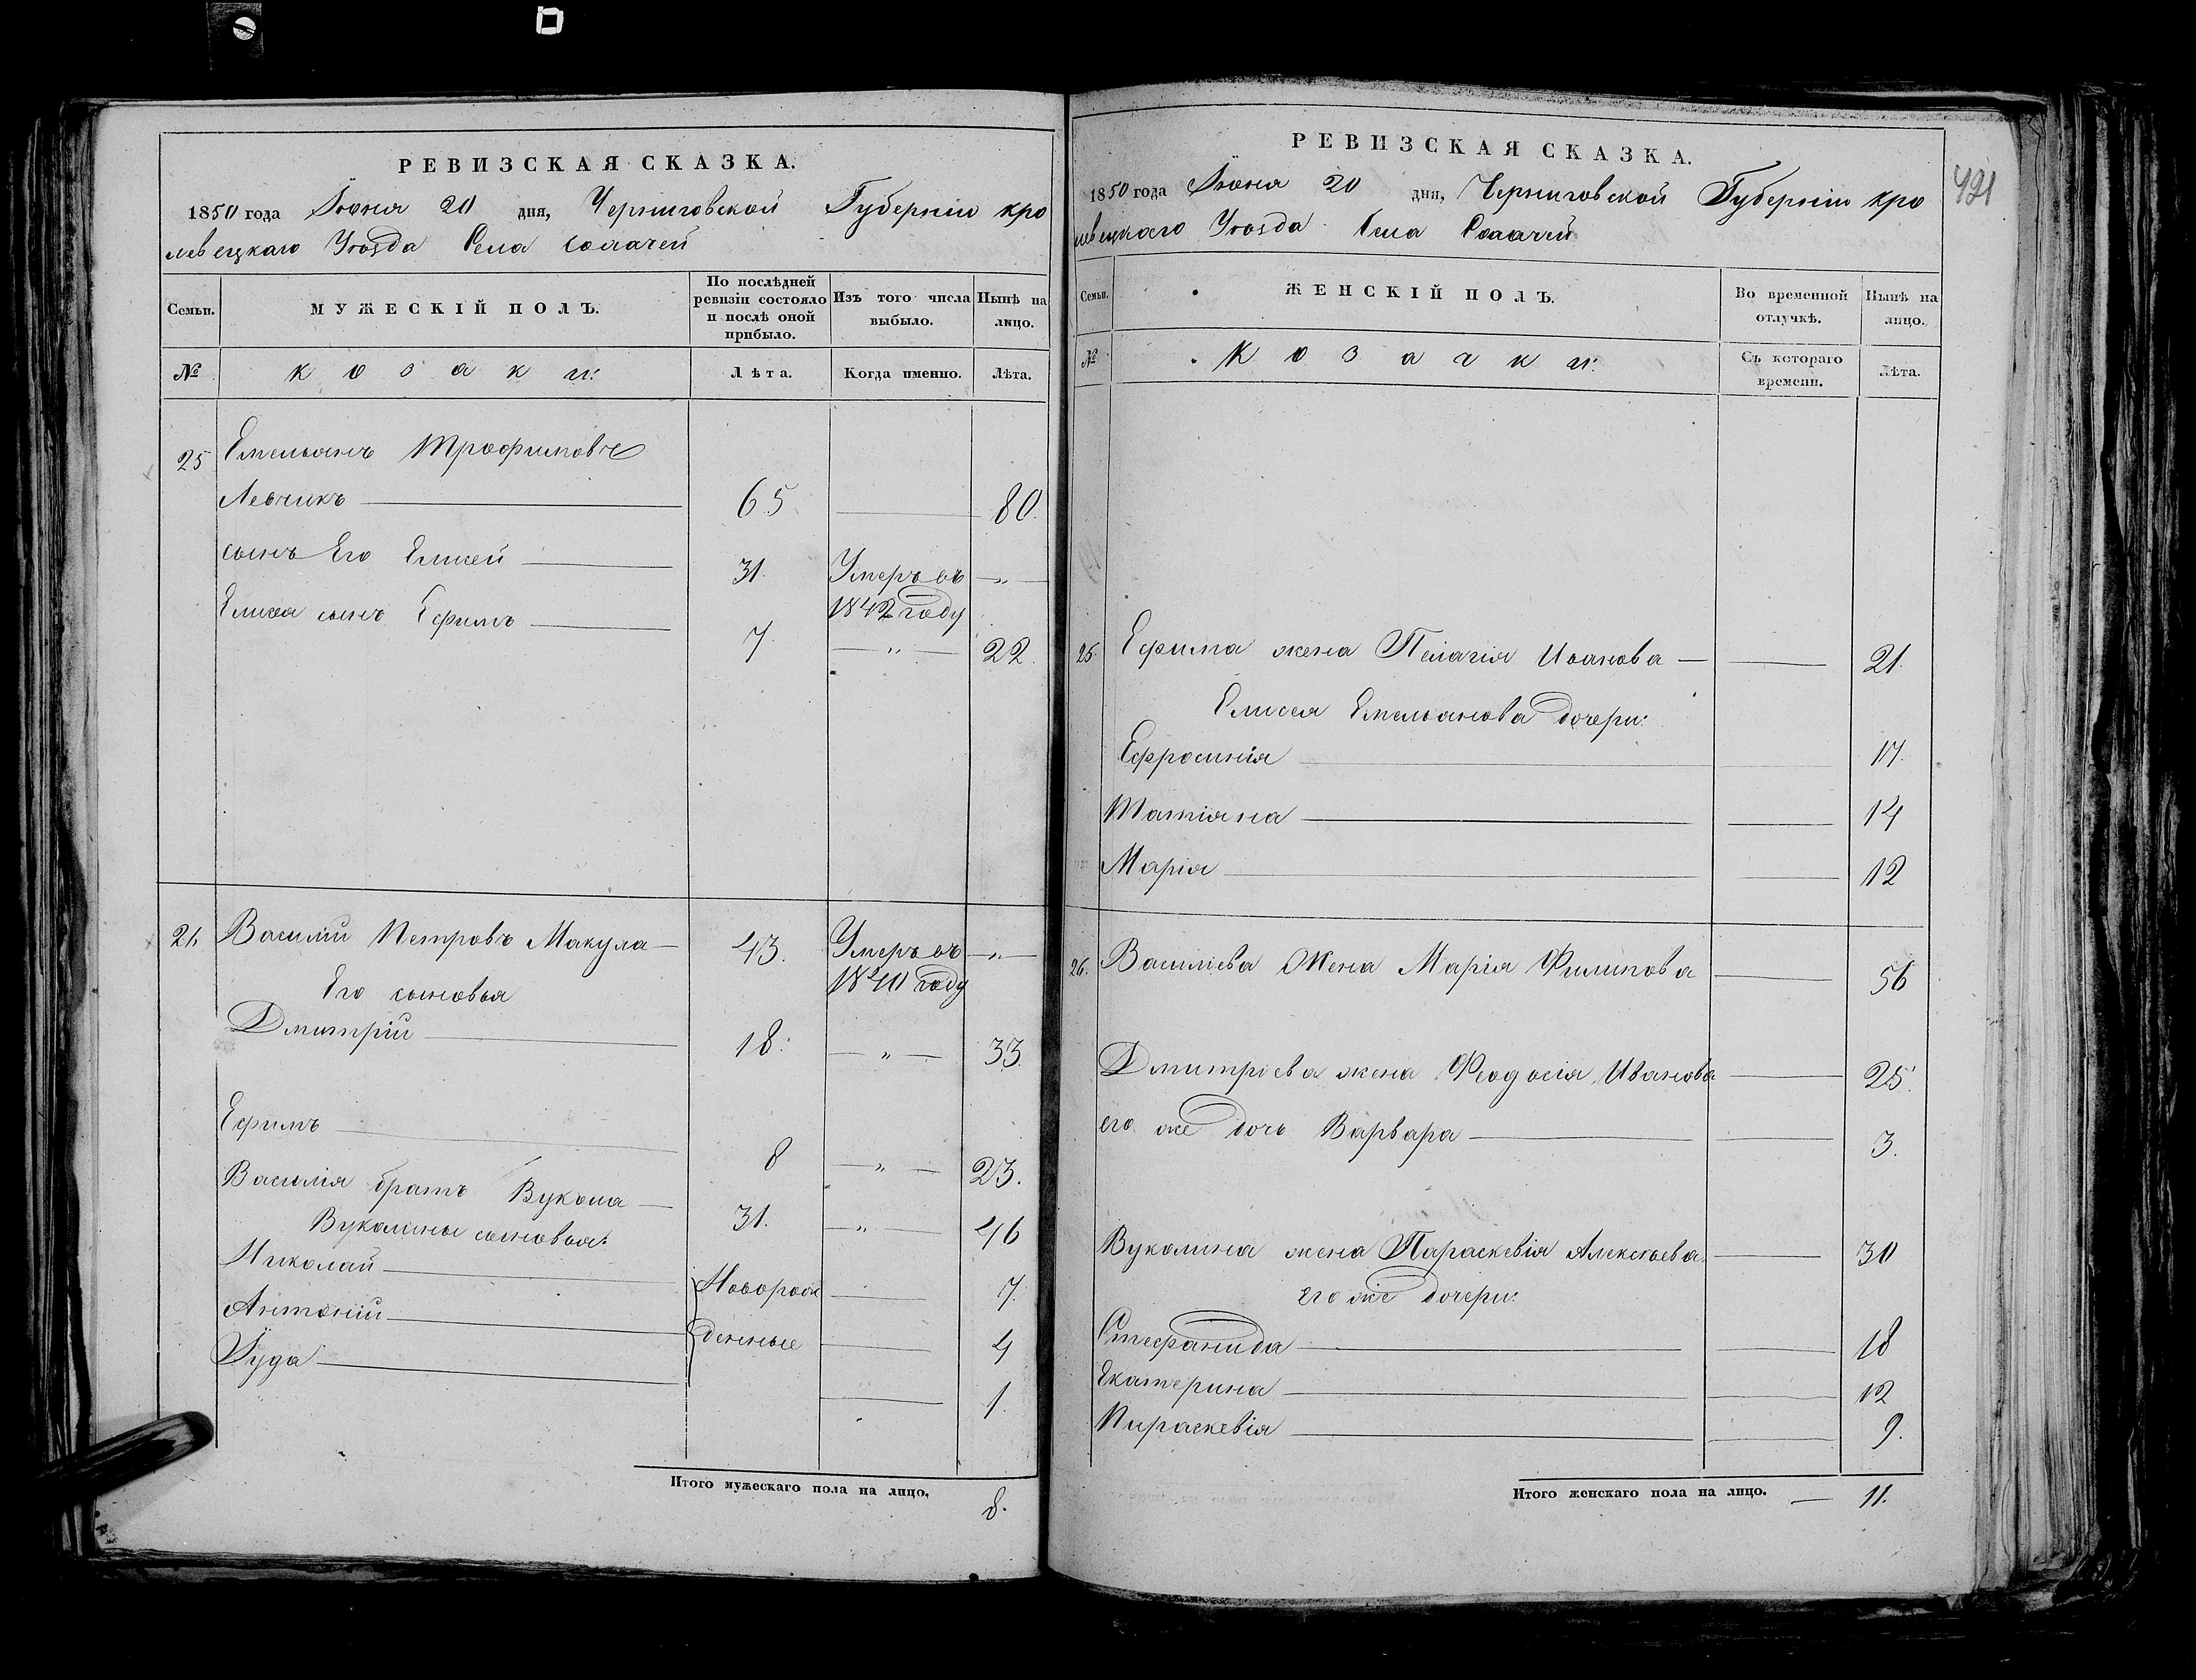 РЕВИЗСКАЯ СКАЗКА.
1850 года Іюня 20 дня, Черниговской Губерніи кро
левецкаго Уѣзда Села
Семьи. МУЖЕСКІЙ ПОЛЪ. По послѣдней ревизіи состояло и послѣ оной прибыло. Изъ того числа выбыло. Нынѣ на лицо.
№ козаки: Лѣта. Когда именно. Лѣта.
25 Емельянъ Трофимовъ
Левчикъ 65 80.
сынъ Его Елисей 31. Умеръ въ — „ —
1842 году
Елисея сынъ Ефимъ 7. — „ — 22.
26 Василій Петровъ Макуха 43. Умеръ въ — „ —
1840 году
Его сыновья
Дмитрій 18. — „ — 33.
Ефимъ 8 — „ — 23.
Василія братъ Вукола 31. — „ — 46
Вуколины сыновья:
Николай Новорож 7.
Антоній денные 4
Іуда 1.
Итого мужескаго пола на лицо, 8.
РЕВИЗСКАЯ СКАЗКА.
1850 года Іюня 20 дня, Черниговской Губерніи кро
левецкаго Уѣзда Села
421
Семьи. ЖЕНСКІЙ ПОЛЪ. Во временной отлучкѣ. Нынѣ на лицо.
№ Козачки: Съ котораго времени. Лѣта.
25. Ефима жена Пелагія Иванова 21.
Елисея Емельянова дочери:
Ефросинія 17.
Татіяна 14
Марія 12
26. Василіева Жена Марія Филипова 56
Дмитріева жена Феодосія Иванова 25.
его же дочь Варвара 3.
Вуколина жена Параскевія Алексѣева 30
его же дочери:
Стефанида 18
Екатерина 12
Параскевія 9.
Итого женскаго пола на лицо. — 11.